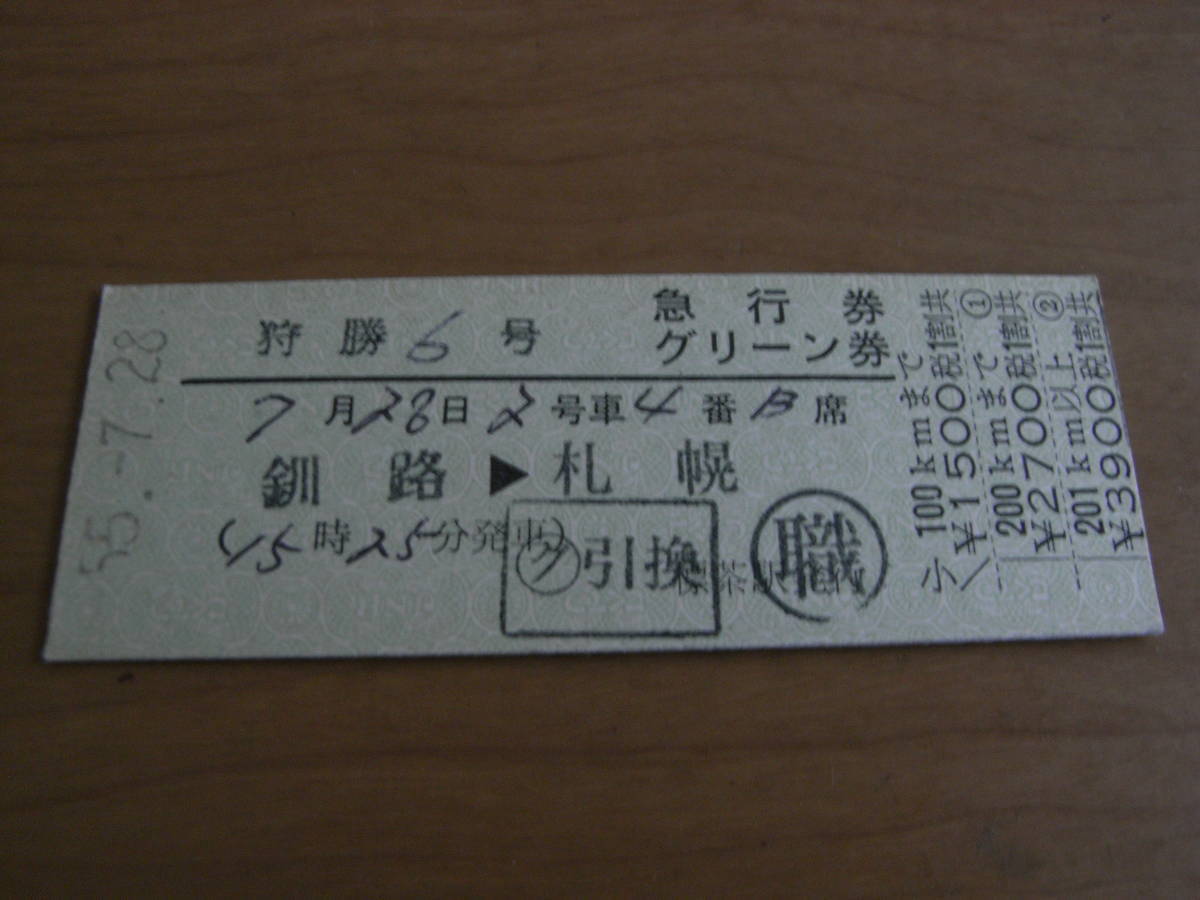 55.-7.28
狩勝6号
急行券
グリーン券
7月28日2号車4番B席
釧路▶札幌
(15時25分発車)
㋗引換
職
標茶駅発行
100kmまで
¥1500税1割共
①
200kmまで
¥2700税1割共
②
201km以上
¥3900税1割共
小